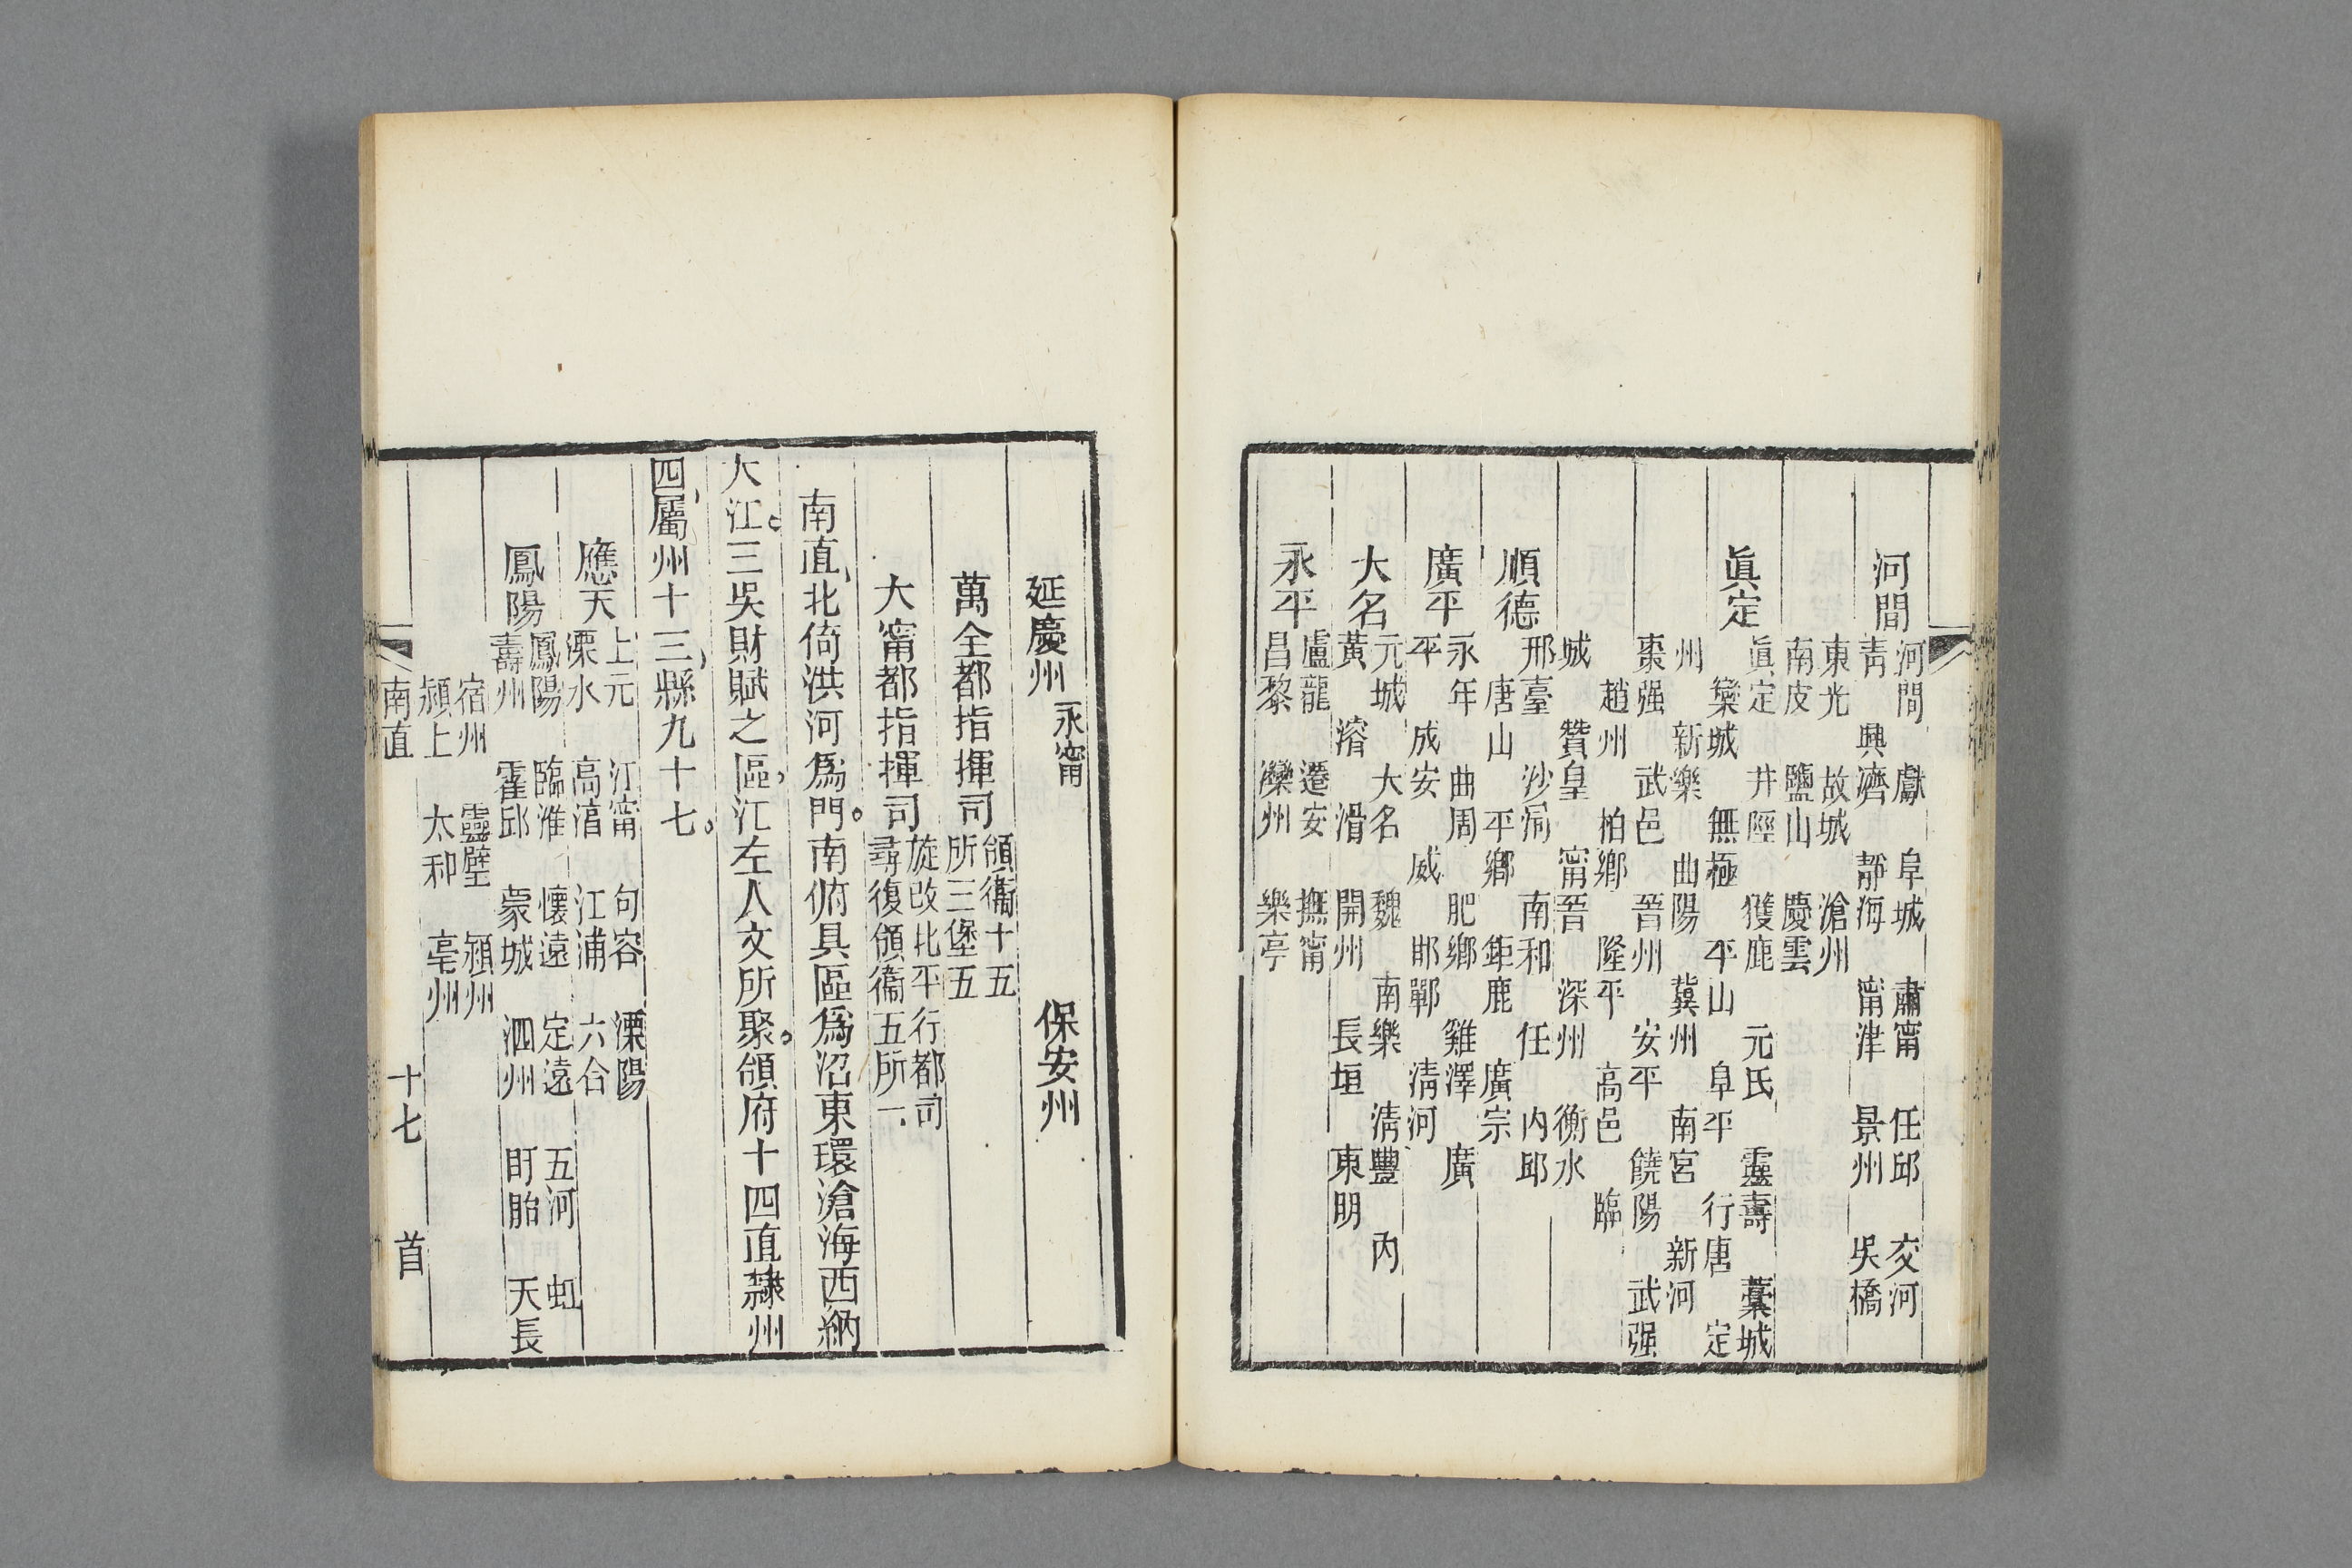 河間
河間　獻　阜城　肅甯　任邱　交河
青　興濟　靜海　甯津　景州　吳橋
東光　故城　滄州
南皮　鹽山　慶雲
眞定
眞定　井陘　獲鹿　元氏　靈壽　藁城
欒城　無極　平山　阜平　行唐　定
州　新樂　曲陽　冀州　南宮　新河
棗强　武邑　晉州　安平　饒陽　武强
趙州　柏鄉　隆平　高邑　臨
城　贊皇　甯晉　深州　衡水
順德
邢臺　沙河　南和　任　內邱
唐山　平鄉　鉅鹿　廣宗
廣平
永年　曲周　肥鄉　雞澤　廣
平　成安　威　邯鄲　淸河
大名
元城　大名　魏　南樂　淸豐　內
黃　濬　滑　開州　長垣　東明
永平
盧龍　遷安　撫甯
昌黎　灤州　樂亭
延慶州　永甯　保安州
萬全都指揮司
領衞十五
所三堡五
大甯都指揮司
旋改北平行都司
尋復領衞五所一
南直、北倚洪河爲門。南俯具區爲沼東環滄海西納
大江。三吳財賦之區。江左人文所聚。領府十四直隸州
四、屬州十三、縣九十七。
應天
上元　江甯　句容　溧陽
溧水　高淳　江浦　六合
鳳陽
鳳陽　臨淮　懷遠　定遠　五河　虹
壽州　霍邱　蒙城　泗州　盱眙　天長
宿州　靈璧　潁州
潁上　太和　亳州
南直　十七　首